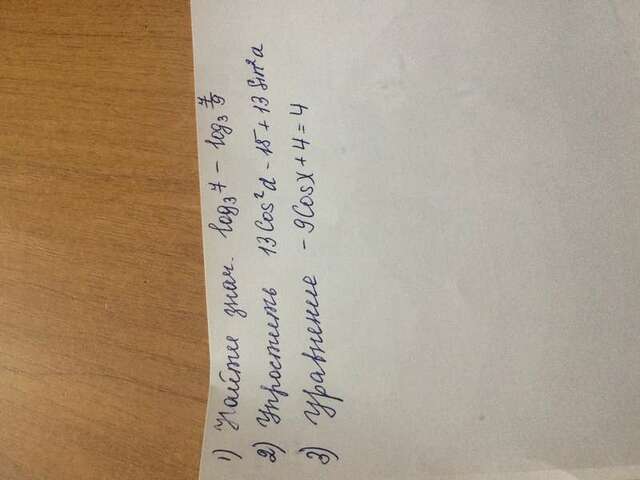 1) Найти знач. log₃7 - log₃ 7/9
2) Упростить 13Cos²α - 15 + 13Sin²α
3) Уравнение -9Cosx + 4 = 4